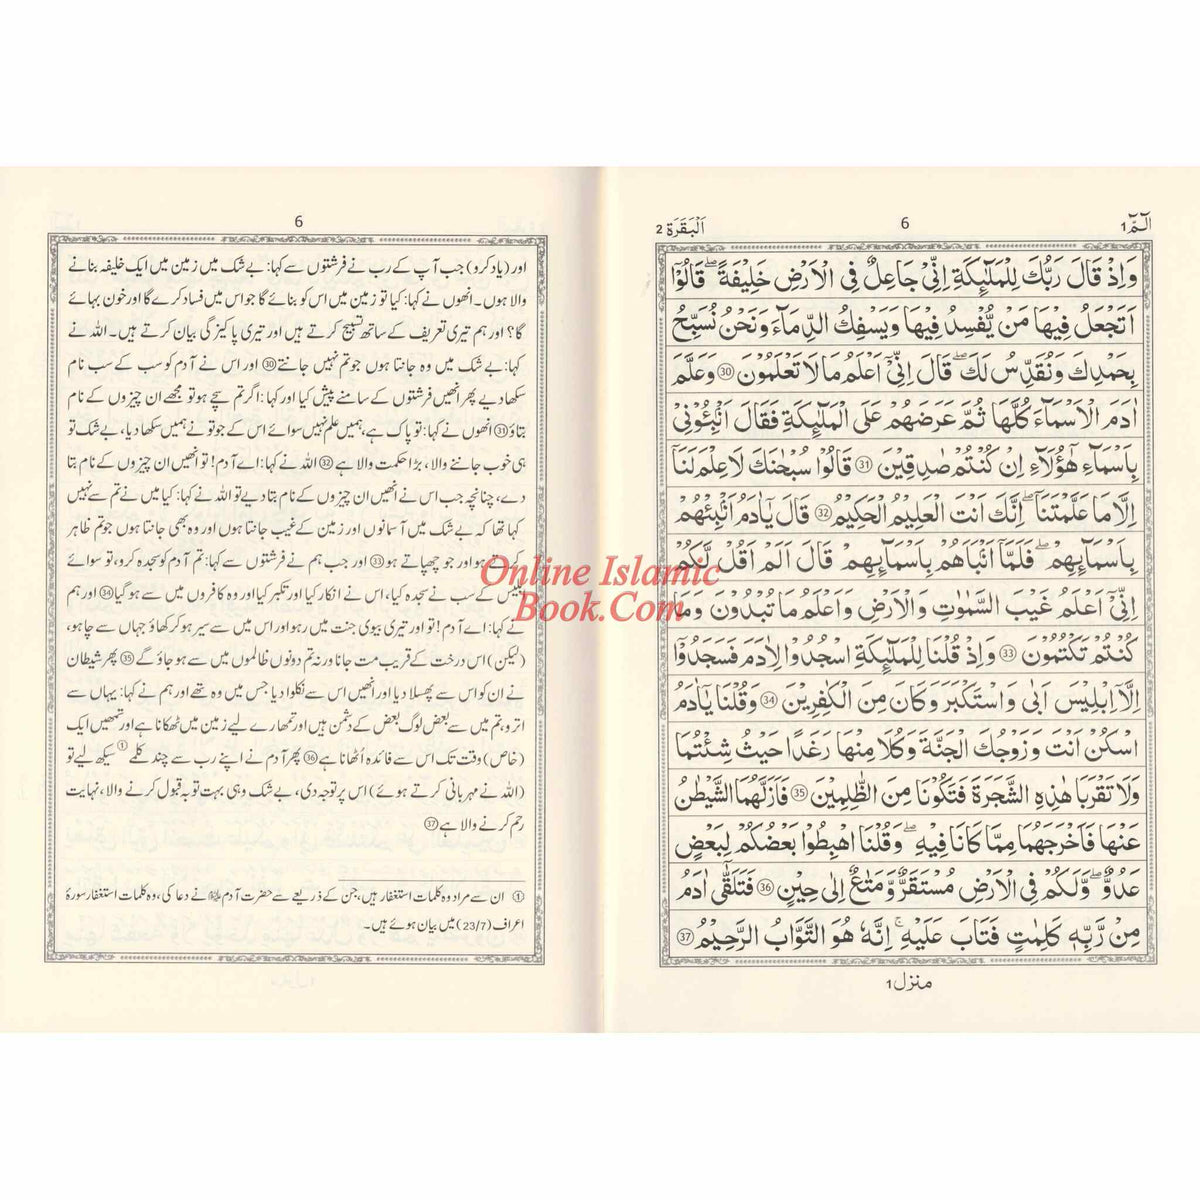 الٓمّٓ 1
6
اَلْبَقَرَة 2
وَاِذْ قَالَ رَبُّكَ لِلْمَلٰٓئِكَةِ اِنِّيْ جَاعِلٌ فِي الْاَرْضِ خَلِيْفَةً ؕ قَالُوْٓا
اَتَجْعَلُ فِيْهَا مَنْ يُّفْسِدُ فِيْهَا وَيَسْفِكُ الدِّمَآءَ وَنَحْنُ نُسَبِّحُ
بِحَمْدِكَ وَنُقَدِّسُ لَكَ ؕ قَالَ اِنِّيْٓ اَعْلَمُ مَا لَا تَعْلَمُوْنَ ۝30 وَعَلَّمَ
اٰدَمَ الْاَسْمَآءَ كُلَّهَا ثُمَّ عَرَضَهُمْ عَلَى الْمَلٰٓئِكَةِ فَقَالَ اَنْۢبِئُوْنِيْ
بِاَسْمَآءِ هٰٓؤُلَآءِ اِنْ كُنْتُمْ صٰدِقِيْنَ ۝31 قَالُوْا سُبْحٰنَكَ لَا عِلْمَ لَنَآ
اِلَّا مَا عَلَّمْتَنَا ؕ اِنَّكَ اَنْتَ الْعَلِيْمُ الْحَكِيْمُ ۝32 قَالَ يٰٓاٰدَمُ اَنْۢبِئْهُمْ
بِاَسْمَآئِهِمْ ۚ فَلَمَّآ اَنْۢبَاَهُمْ بِاَسْمَآئِهِمْ قَالَ اَلَمْ اَقُلْ لَّكُمْ
اِنِّيْٓ اَعْلَمُ غَيْبَ السَّمٰوٰتِ وَالْاَرْضِ وَاَعْلَمُ مَا تُبْدُوْنَ وَمَا
كُنْتُمْ تَكْتُمُوْنَ ۝33 وَاِذْ قُلْنَا لِلْمَلٰٓئِكَةِ اسْجُدُوْا لِاٰدَمَ فَسَجَدُوْٓا
اِلَّآ اِبْلِيْسَ اَبٰى وَاسْتَكْبَرَ وَكَانَ مِنَ الْكٰفِرِيْنَ ۝34 وَقُلْنَا يٰٓاٰدَمُ
اسْكُنْ اَنْتَ وَزَوْجُكَ الْجَنَّةَ وَكُلَا مِنْهَا رَغَدًا حَيْثُ شِئْتُمَا
وَلَا تَقْرَبَا هٰذِهِ الشَّجَرَةَ فَتَكُوْنَا مِنَ الظّٰلِمِيْنَ ۝35 فَاَزَلَّهُمَا الشَّيْطٰنُ
عَنْهَا فَاَخْرَجَهُمَا مِمَّا كَانَا فِيْهِ ۪ وَقُلْنَا اهْبِطُوْا بَعْضُكُمْ لِبَعْضٍ
عَدُوٌّ ۚ وَلَكُمْ فِي الْاَرْضِ مُسْتَقَرٌّ وَّمَتَاعٌ اِلٰى حِيْنٍ ۝36 فَتَلَقّٰٓى اٰدَمُ
مِنْ رَّبِّهٖ كَلِمٰتٍ فَتَابَ عَلَيْهِ ؕ اِنَّهٗ هُوَ التَّوَّابُ الرَّحِيْمُ ۝37
منزل 1
6
اور (یاد کرو) جب آپ کے رب نے فرشتوں سے کہا: بے شک میں زمین میں ایک خلیفہ بنانے
والا ہوں۔ انھوں نے کہا: کیا تو زمین میں اس کو بنائے گا جو اس میں فساد کرے گا اور خون بہائے
گا؟ اور ہم تیری تعریف کے ساتھ تسبیح کرتے ہیں اور تیری پاکیزگی بیان کرتے ہیں۔ اللہ نے
کہا: بے شک میں وہ جانتا ہوں جو تم نہیں جانتے ۝30 اور اس نے آدم کو سب کے سب نام
سکھا دیے پھر انھیں فرشتوں کے سامنے پیش کیا اور کہا: اگر تم سچے ہو تو مجھے ان چیزوں کے نام
بتاؤ ۝31 انھوں نے کہا: تو پاک ہے، ہمیں علم نہیں سوائے اس کے جو تو نے ہمیں سکھا دیا، بے شک تو
ہی خوب جاننے والا، بڑا حکمت والا ہے ۝32 اللہ نے کہا: اے آدم! تو انھیں ان چیزوں کے نام بتا
دے، چنانچہ جب اس نے انھیں ان چیزوں کے نام بتا دیے تو اللہ نے کہا: کیا میں نے تم سے نہیں
کہا تھا کہ بے شک میں آسمانوں اور زمین کے غیب جانتا ہوں اور وہ بھی جانتا ہوں جو تم ظاہر
کرتے ہو اور جو چھپاتے ہو ۝33 اور جب ہم نے فرشتوں سے کہا: تم آدم کو سجدہ کرو، تو سوائے
ابلیس کے سب نے سجدہ کیا، اس نے انکار کیا اور تکبر کیا اور وہ کافروں میں سے ہو گیا ۝34 اور ہم
نے کہا: اے آدم! تو اور تیری بیوی جنت میں رہو اور اس میں سے سیر ہو کر کھاؤ جہاں سے چاہو،
(لیکن) اس درخت کے قریب مت جانا ورنہ تم دونوں ظالموں میں سے ہو جاؤ گے ۝35 پھر شیطان
نے ان کو اس سے پھسلا دیا اور انھیں اس سے نکلوا دیا جس میں وہ تھے اور ہم نے کہا: یہاں سے
اترو، تم میں سے بعض لوگ بعض کے دشمن ہیں اور تمھارے لیے زمین میں ٹھکانا ہے اور تمھیں ایک
(خاص) وقت تک اس سے فائدہ اُٹھانا ہے ۝36 پھر آدم نے اپنے رب سے چند کلمے① سیکھ لیے تو
(اللہ نے مہربانی کرتے ہوئے) اس پر توجہ دی، بے شک وہی بہت توبہ قبول کرنے والا، نہایت
رحم کرنے والا ہے ۝37
① ان سے مراد وہ کلمات استغفار ہیں، جن کے ذریعے سے حضرت آدم ؑ نے دعا کی، وہ کلمات استغفار سورۂ
اعراف (23/7) میں بیان ہوئے ہیں۔
Online Islamic
Book.Com